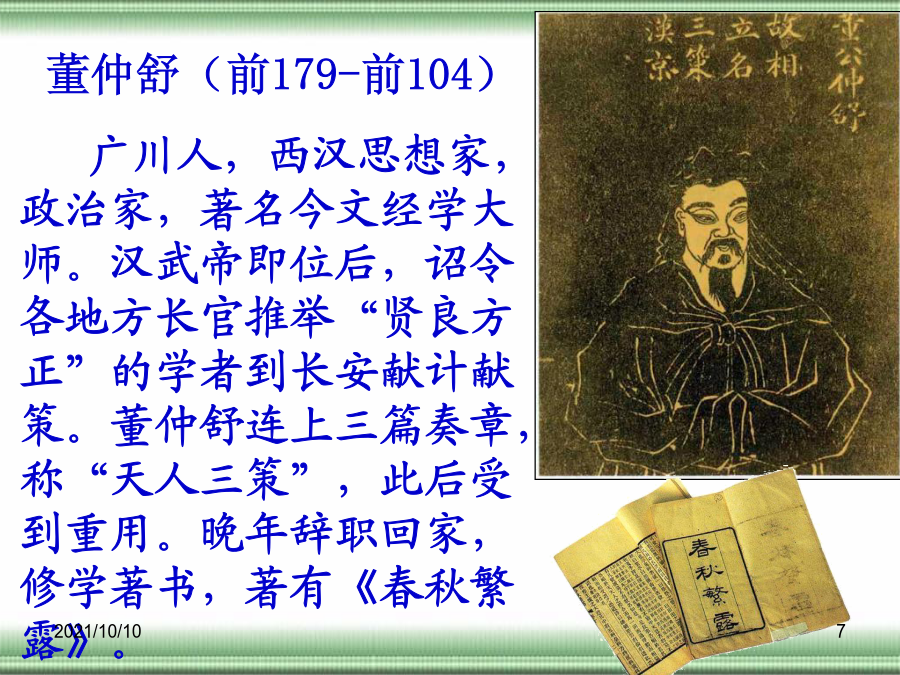 董仲舒（前179-前104）
广川人，西汉思想家，
政治家，著名今文经学大
师。汉武帝即位后，诏令
各地方长官推举“贤良方
正”的学者到长安献计献
策。董仲舒连上三篇奏章，
称“天人三策”，此后受
到重用。晚年辞职回家，
修学著书，著有《春秋繁
露》。
董公仲舒
故相
立名
三策
漢京
春秋繁露
2021/10/10
7